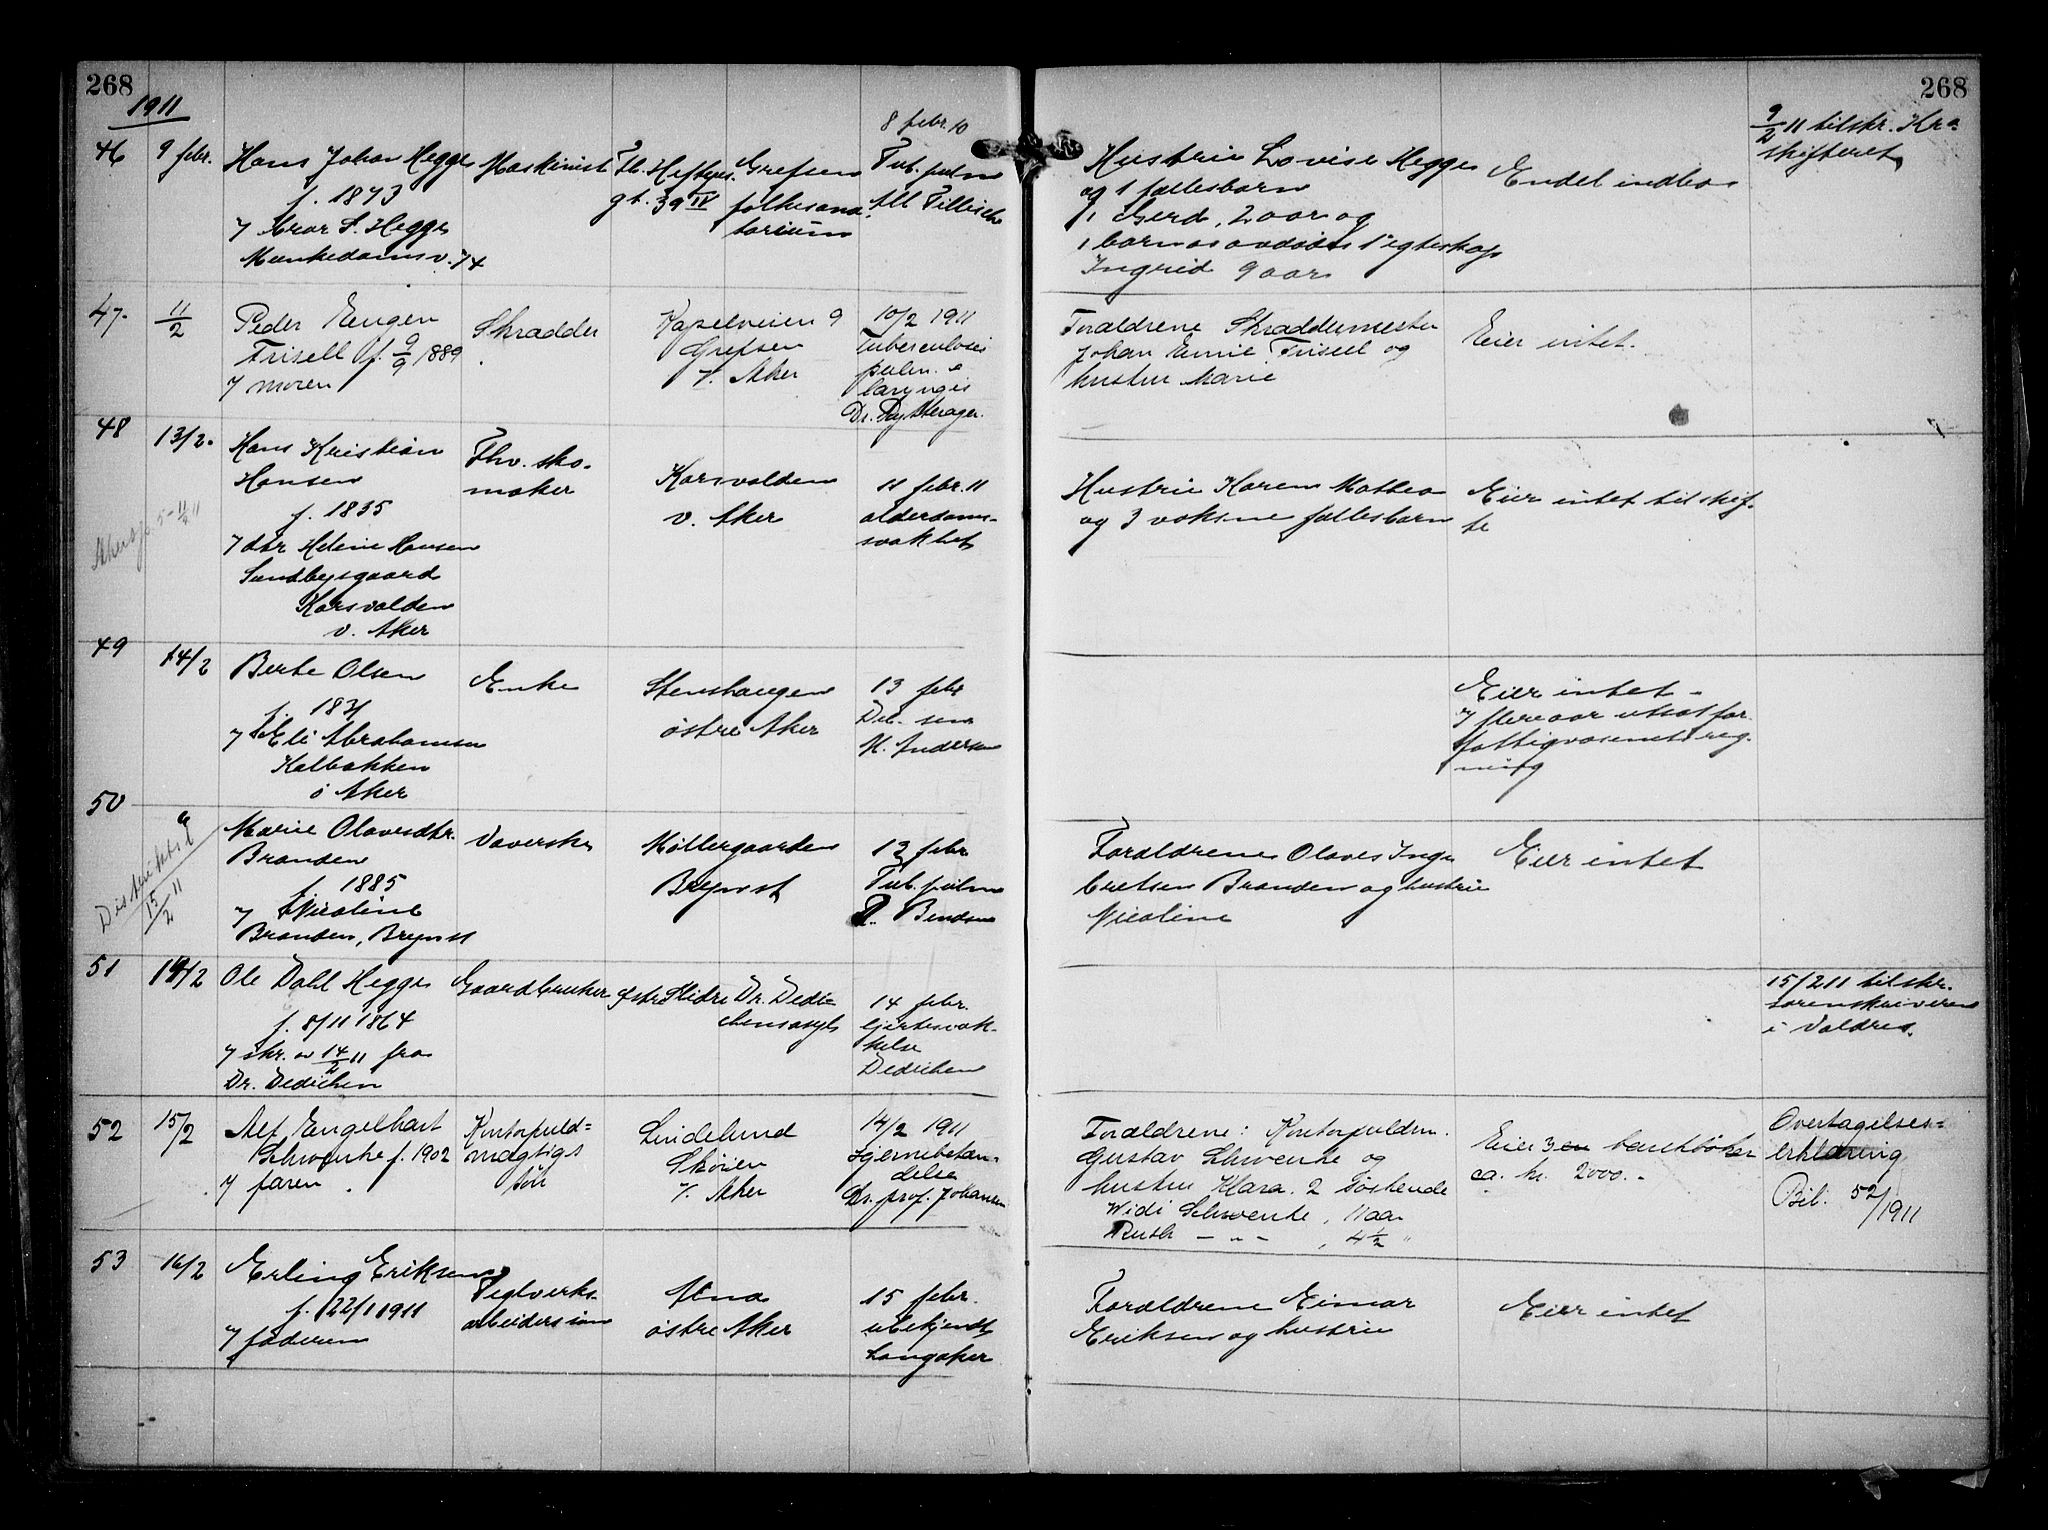 268
268
1911
46
9 febr.
Hans Johan Hegge
f. 1873
Munkedamsv. 74
Maskinist
Th. Heftyes
gt. 39 IV
Grefsen
folkesana-
torium
8 febr. 10
Tub. pulm
Hustru Lovise Hegge
og 1 fællesbarn
Gerd, 2 aar og
Ingrid 9 aar
Endel indbo
9/2 11 tilskr. Kra
skifteret
47.
11/2
Peder Eugen
Frisell f. 9/9 1889
moren
Skrædder
Kapelveien 9
Grefsen
V. Aker
10/2 1911
Tuberculosis
pulm. &
laryngis
Forældrene Skræddermester
Johan Frisell og
hustru Marie
Eier intet.
48
13/2.
Hans Kristian
Hansen
f. 1835
dtr Helene Hansen
Sundbysgaard
Korsvolden
v. Aker
Fhv. sko-
maker
Korsvolden
v. Aker
11 febr. 11
alderdoms-
svakhet
Hustru Karen Mathea
og 3 voksne fællesbarn
Eier intet til skif-
te
49
14/2
Berte Olsen
f. 1831
Eli Abrahamsen
Kalbakken
ø Aker
Enke
Stenshaugen
østre Aker
13 febr
Deb. sen
M. Andersen
Eier intet -
flere aar utsat for
fattigvæsenets reg-
ning
50
"
Marie Olavesdtr.
Branden
f. 1885
Nicoline
Branden, Brynst
Væverske
Møllergaarden
Brynst
Tub. pulm
Forældrene Olaves Inge
bretsen Branden og hustru
Nicoline
Eier intet
15/2 11
51
14/2
Ole Dahl Hegge
f. 8/11 1864
skr. av 14/2 11 fra
Dr. Dedichen
Gaardbruker
østre Slidre
Dr. Dedi-
chens asyl
14 febr.
hjertesvæk-
kelse
Dedichen
15/2 11 tilskr.
sorenskriveren
i Valdres.
52
15/2
Alf Engelhart
Schwenke f. 1902
faren
Kontorfuld-
mægtigs
søn
Lindelund
Skøien
V. Aker
14/2 1911
Hjernebetæn-
delse
Dr. prof. Johannesen
Forældrene: Kontorfuldm.
Gustav Schwenke og
hustru Klara. 2 søskende
Widi Schwenke, 11 aar
Ruth - " - , 4 1/2 "
Eier 3 en bankbøker
ca. kr. 2000.-
Overtagelses-
erklæring
Bil. 52/1911
53
16/2
Erling Eriksen
f. 22/1 1911
faderen
Teglverks-
arbeiders søn
Alna
østre Aker
15 febr.
ubekjendt
Langaker
Forældrene Einar
Eriksen og hustru
Eier intet